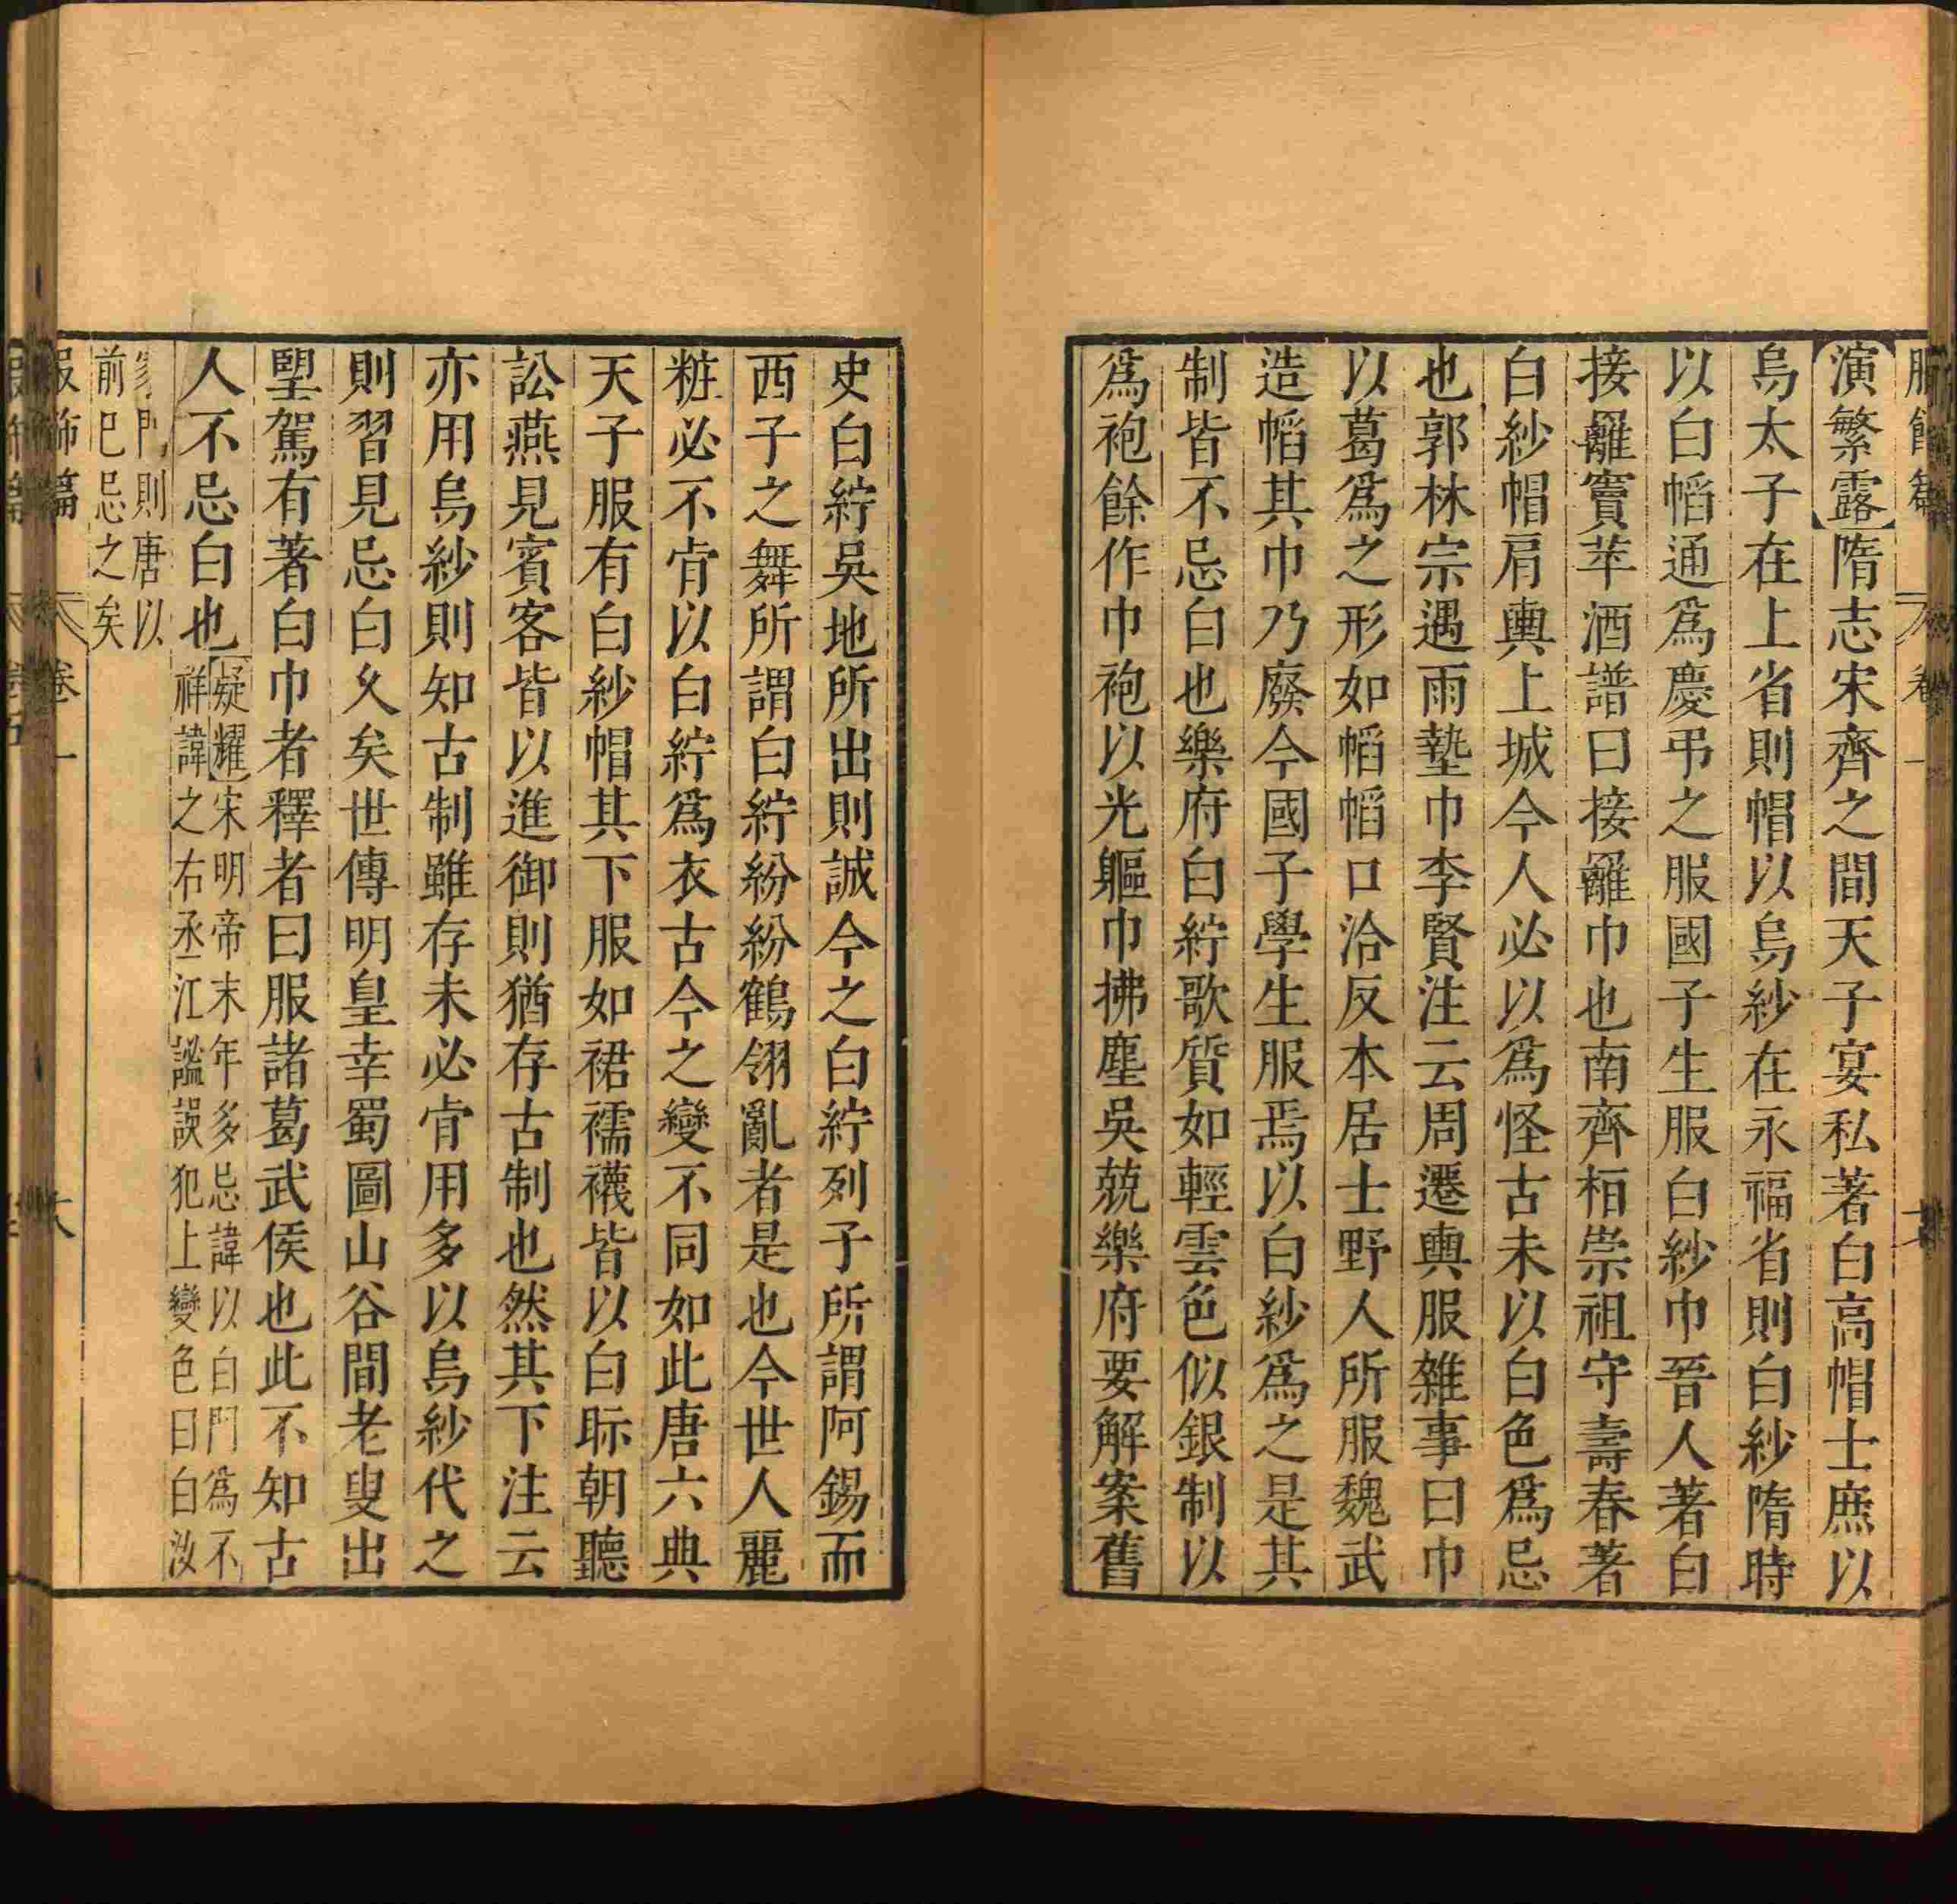 服飾篇 卷一
演繁露隋志宋齊之間天子宴私著白高帽士庶以
烏太子在上省則帽以烏紗在永福省則白紗隋時
以白幍通為慶弔之服國子生服白紗巾晉人著白
接䍦竇苹酒譜曰接䍦巾也南齊桓崇祖守壽春著
白紗帽肩輿上城今人必以為怪古未以白色為忌
也郭林宗遇雨墊巾李賢注云周遷輿服雜事曰巾
以葛為之形如幍幍口洽反本居士野人所服魏武
造幍其巾乃廢今國子學生服焉以白紗為之是其
制皆不忌白也樂府白紵歌質如輕雲色似銀制以
為袍餘作巾袍以光軀巾拂塵吳兢樂府要解案舊
史白紵吳地所出則誠今之白紵列子所謂阿錫而
西子之舞所謂白紵紛紛鶴翎亂者是也今世人麗
粧必不肯以白紵為衣古今之變不同如此唐六典
天子服有白紗帽其下服如裙襦襪皆以白眎朝聽
訟燕見賓客皆以進御則猶存古制也然其下注云
亦用烏紗則知古制雖存未必肯用多以烏紗代之
則習見忌白久矣世傳明皇幸蜀圖山谷間老叟出
朢駕有著白巾者釋者曰服諸葛武侯也此不知古
人不忌白也
疑耀宋明帝末年多忌諱以白門為不
祥諱之右丞江謐誤犯上變色曰白汝
家門則唐以
前已忌之矣
服飾篇 卷一